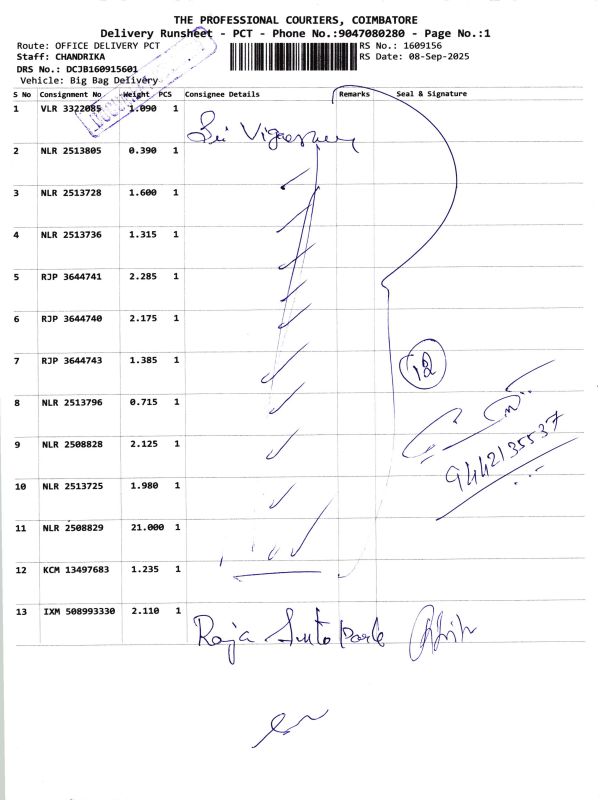 THE PROFESSIONAL COURIERS, COIMBATORE
Delivery Runsheet - PCT - Phone No.:9047080280 - Page No.:1
Route: OFFICE DELIVERY PCT
RS No.: 1609156
Staff: CHANDRIKA
RS Date: 08-Sep-2025
DRS No.: DCJB160915601
Vehicle: Big Bag Delivery
S No Consignment No Weight PCS Consignee Details Remarks Seal & Signature
1 VLR 3322085 1.090 1
2 NLR 2513805 0.390 1
3 NLR 2513728 1.600 1
4 NLR 2513736 1.315 1
5 RJP 3644741 2.285 1
6 RJP 3644740 2.175 1
7 RJP 3644743 1.385 1
12
8 NLR 2513796 0.715 1
9 NLR 2508828 2.125 1
9442135537
10 NLR 2513725 1.980 1
11 NLR 2508829 21.000 1
12 KCM 13497683 1.235 1
13 IXM 508993330 2.110 1
Raja Auto Parts